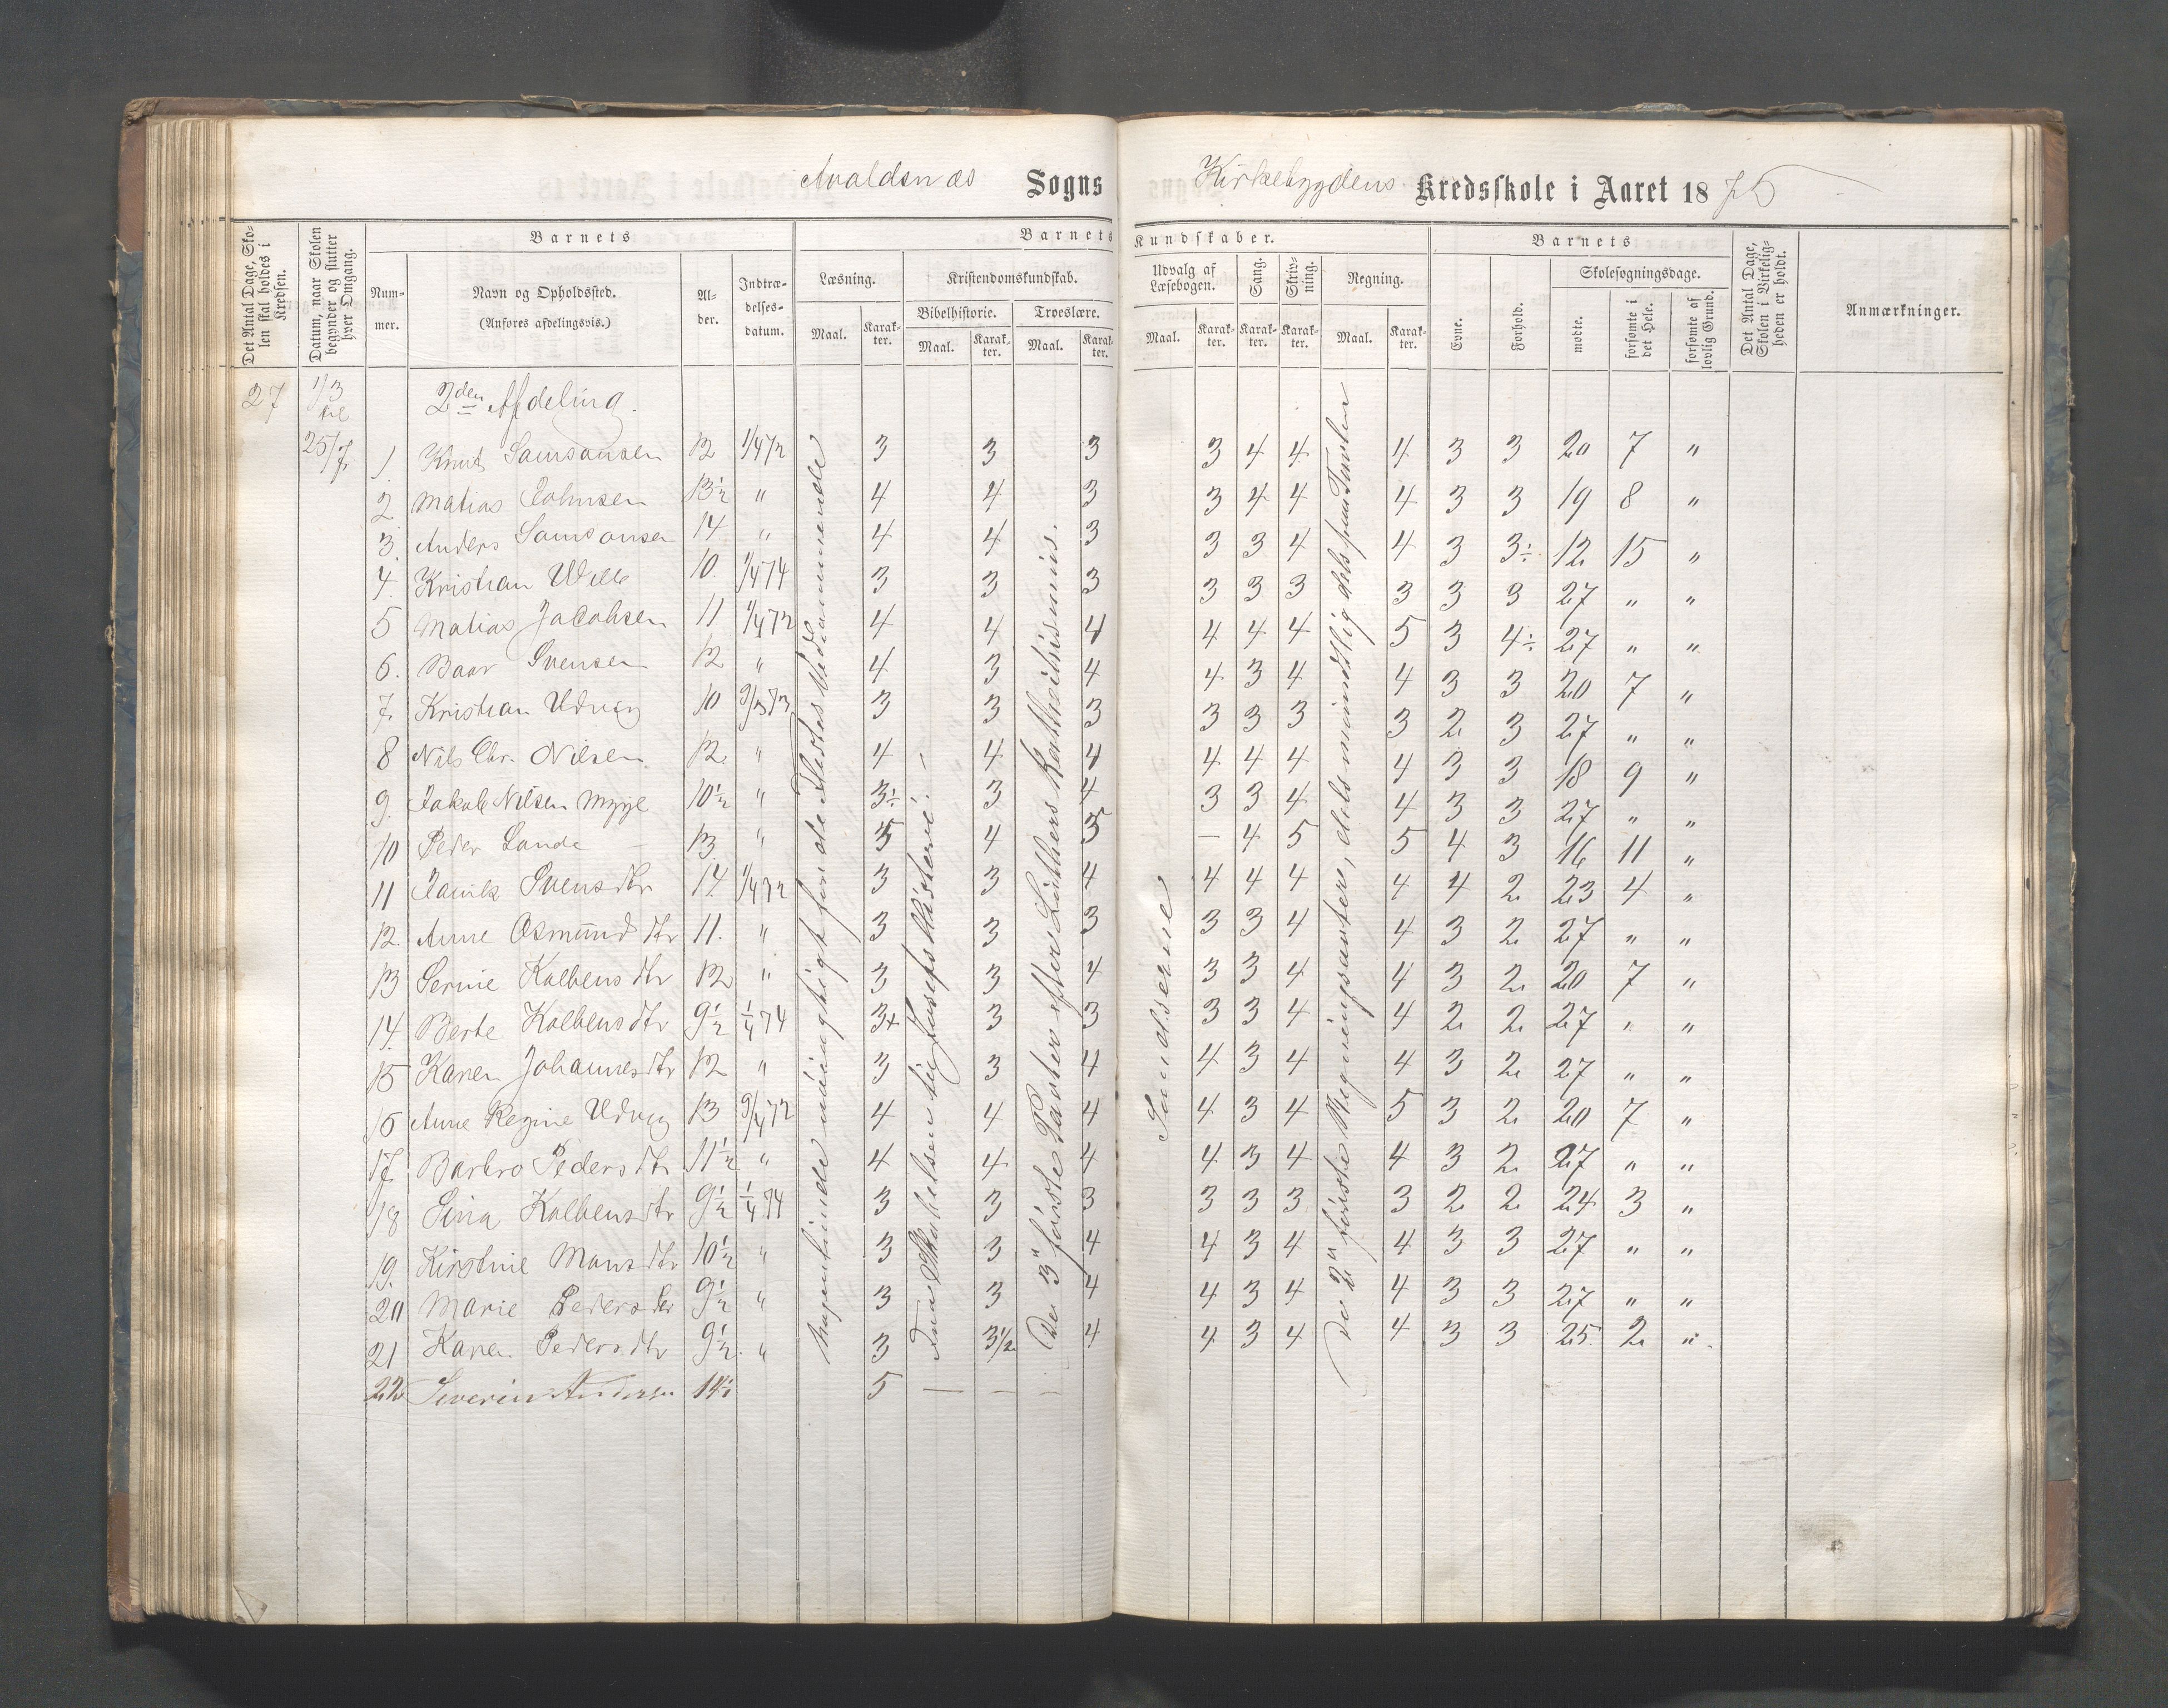 Avaldsnæs Sogns Kirkebygdens Kredsskole i Aaret 1875
Det Antal Dage, Skolen skal holdes i Kredsen.
Datum, naar Skolen begynder og slutter hver Omgang.
Barnets
Num-mer.
Navn og Opholdssted.
(Anføres afdelingsvis.)
Al-der.
Indtræ-delses-datum.
Barnets Kundskaber.
Læsning.
Maal. Karak-ter.
Kristendomskundskab.
Bibelhistorie. Troeslære.
Maal. Karak-ter. Maal. Karak-ter.
Udvalg af Læsebogen.
Maal. Karak-ter.
Sang. Karak-ter.
Skriv-ning. Karak-ter.
Regning.
Maal. Karak-ter.
Barnets
Evne. Forhold.
Skolesøgningsdage.
mødte. forsømte i det Hele. forsømte af lovlig Grund.
Det Antal Dage, Skolen i Virkelig-heden er holdt.
Anmærkninger.
27 1/3 til 25/7 2den Afdeling.
1. Knut Samsonsen 12 1/4 72 3 3 3 3 4 4 4 3 3 20 7 "
2 Matias Johnsen 13½ " 4 4 3 3 4 4 4 3 3 19 8 "
3. Anders Samsonsen 14 " 4 4 3 3 3 4 4 3 3÷ 12 15 "
4. Kristian Wille 10. 1/4 74 3 3 3 3 3 3 3 3 3 27 " "
5 Matias Jacobsen 11 1/4 72 4 4 4 4 4 4 5 3 4÷ 27 " "
6. Baar Svensen 12 " 4 3 4 4 3 4 4 3 3 20 7 "
7. Kristian Udvig 10 3 3 3 3 3 3 3 2 3 27 " "
8 Nils Chr. Nilsen 12. " 4 4 4 4 4 4 4 3 3 18 9 "
9. Jakob Nilsen Mykje 10½ " 3÷ 3 4 3 3 4 4 3 3 27 " "
10 Peder Lande 13 " 5 4 5 — 4 5 5 4 3 16 11 "
11 Svensdtr 14 1/4 72 3 3 4 4 4 4 4 4 2 23 4 "
12. Anne Osmundsdtr 11. " 3 3 3 3 3 4 4 3 2 27 " "
13 Serine Kolbensdtr 12 " 3 3 4 3 3 4 4 3 2 20 7 "
14. Berte Kolbensdtr 9½ 1/4 74 3+ 3 3 3 3 4 4 2 2 27 " "
15 Karen Johannesdtr 12 " 3 3 4 4 3 4 4 3 2 27 " "
16 Anne Regine Udvig 13 9/4 72 4 4 4 4 3 4 5 3 2 20 7 "
17 Barbro Pedersdtr 11½ " 4 4 4 4 3 4 4 3 2 27 " "
18 Sina Kolbensdtr 9½ 1/4 74 3 3 3 3 3 3 3 2 2 24 3 "
19. Kirstine Monsdtr 10½ " 3 3 4 4 3 4 4 3 3 27 " "
20 Marie Pedersdtr 9½ " 3 3 4 4 3 4 4 3 3 27 " "
21 Karen Pedersdtr 9½ " 3 3½ 4 4 3 4 4 3 3 25 2 "
22 Severin Andersen 14½ 5 — — —
Nogenlunde nøiagtigt for de Flestes Vedkommende
Fra Skabelsen til Josefs Historie.
De 3" første Parter efter Luthers Katheikismus.
Sandserne
De 2" første Regningsarter, dels mundtlig dels paa Tavlen